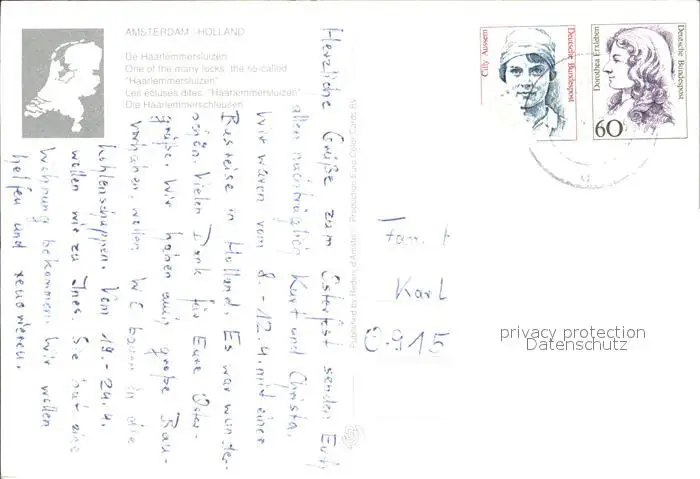 AMSTERDAM HOLLAND
De Haarlemmersluizen
One of the many locks, the so-called
"Haarlemmersluizen"
Les écluses dites: "Haarlemmersluizen"
Die Haarlemmerschleusen
Herzliche Grüße zum Osterfest senden Euch
allen nachträglich Kurt und Christa.
Wir waren vom 8. - 12.4. mit einer
Busreise in Holland. Es war wunder-
schön. Vielen Dank für Eure Oster-
grüße. Wir haben auch große Bau-
vorhaben, wollen WC bauen in die
Kohlenschuppen. Vom 19. - 24.4.
wollen wir zu Ines. Sie hat eine
Wohnung bekommen. Wir wollen
helfen und renovieren.
Cilly Aussem
Deutsche Bundespost
Dorothea Erxleben
Deutsche Bundespost
60
Fam.
Karl
O-915
privacy protection
Datenschutz